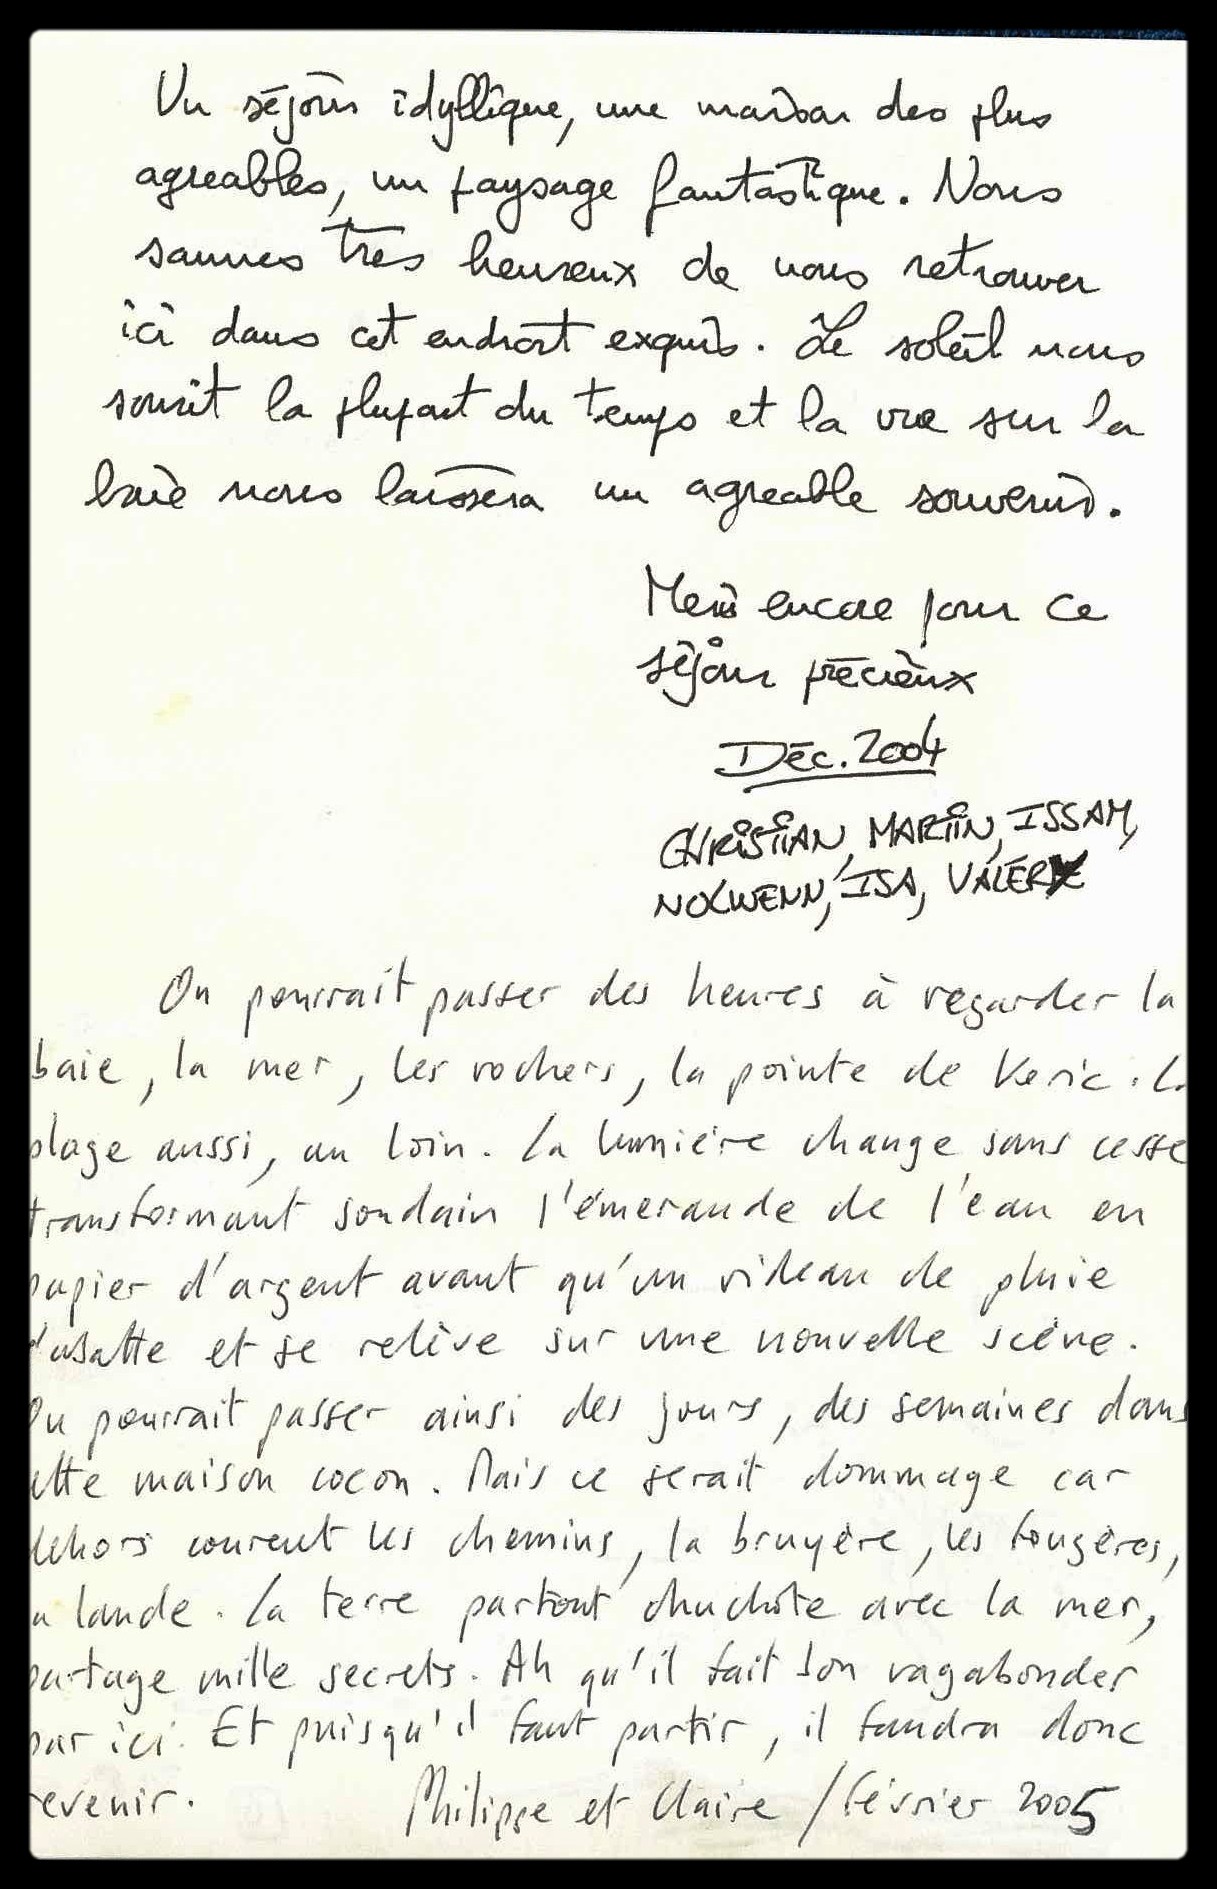 Un séjour idyllique, une maison des plus
agreables, un paysage fantastique. Nous
sommes très heureux de nous retrouver
ici dans cet endroit exquis. Le soleil nous
sourit la plupart du temps et la vue sur la
baie nous laissera un agreable souvenir.
Merci encore pour ce
séjour précieux
Déc. 2004
CHRISTIAN, MARTIN, ISSAM,
NOLWENN, ISA, VALERY
On pourrait passer des heures à regarder la
baie, la mer, les rochers, la pointe de Keric. L
plage aussi, au loin. La lumière change sans cesse
transformant soudain l'émeraude de l'eau en
papier d'argent avant qu'un rideau de pluie
s'abatte et se relève sur une nouvelle scène.
On pourrait passer ainsi des jours, des semaines dans
cette maison cocon. Mais ce serait dommage car
dehors courent les chemins, la bruyère, les fougères,
a lande. La terre partout chuchote avec la mer,
partage mille secrets. Ah qu'il fait bon vagabonder
par ici. Et puisqu'il faut partir, il faudra donc
revenir. Philippe et Claire / février 2005